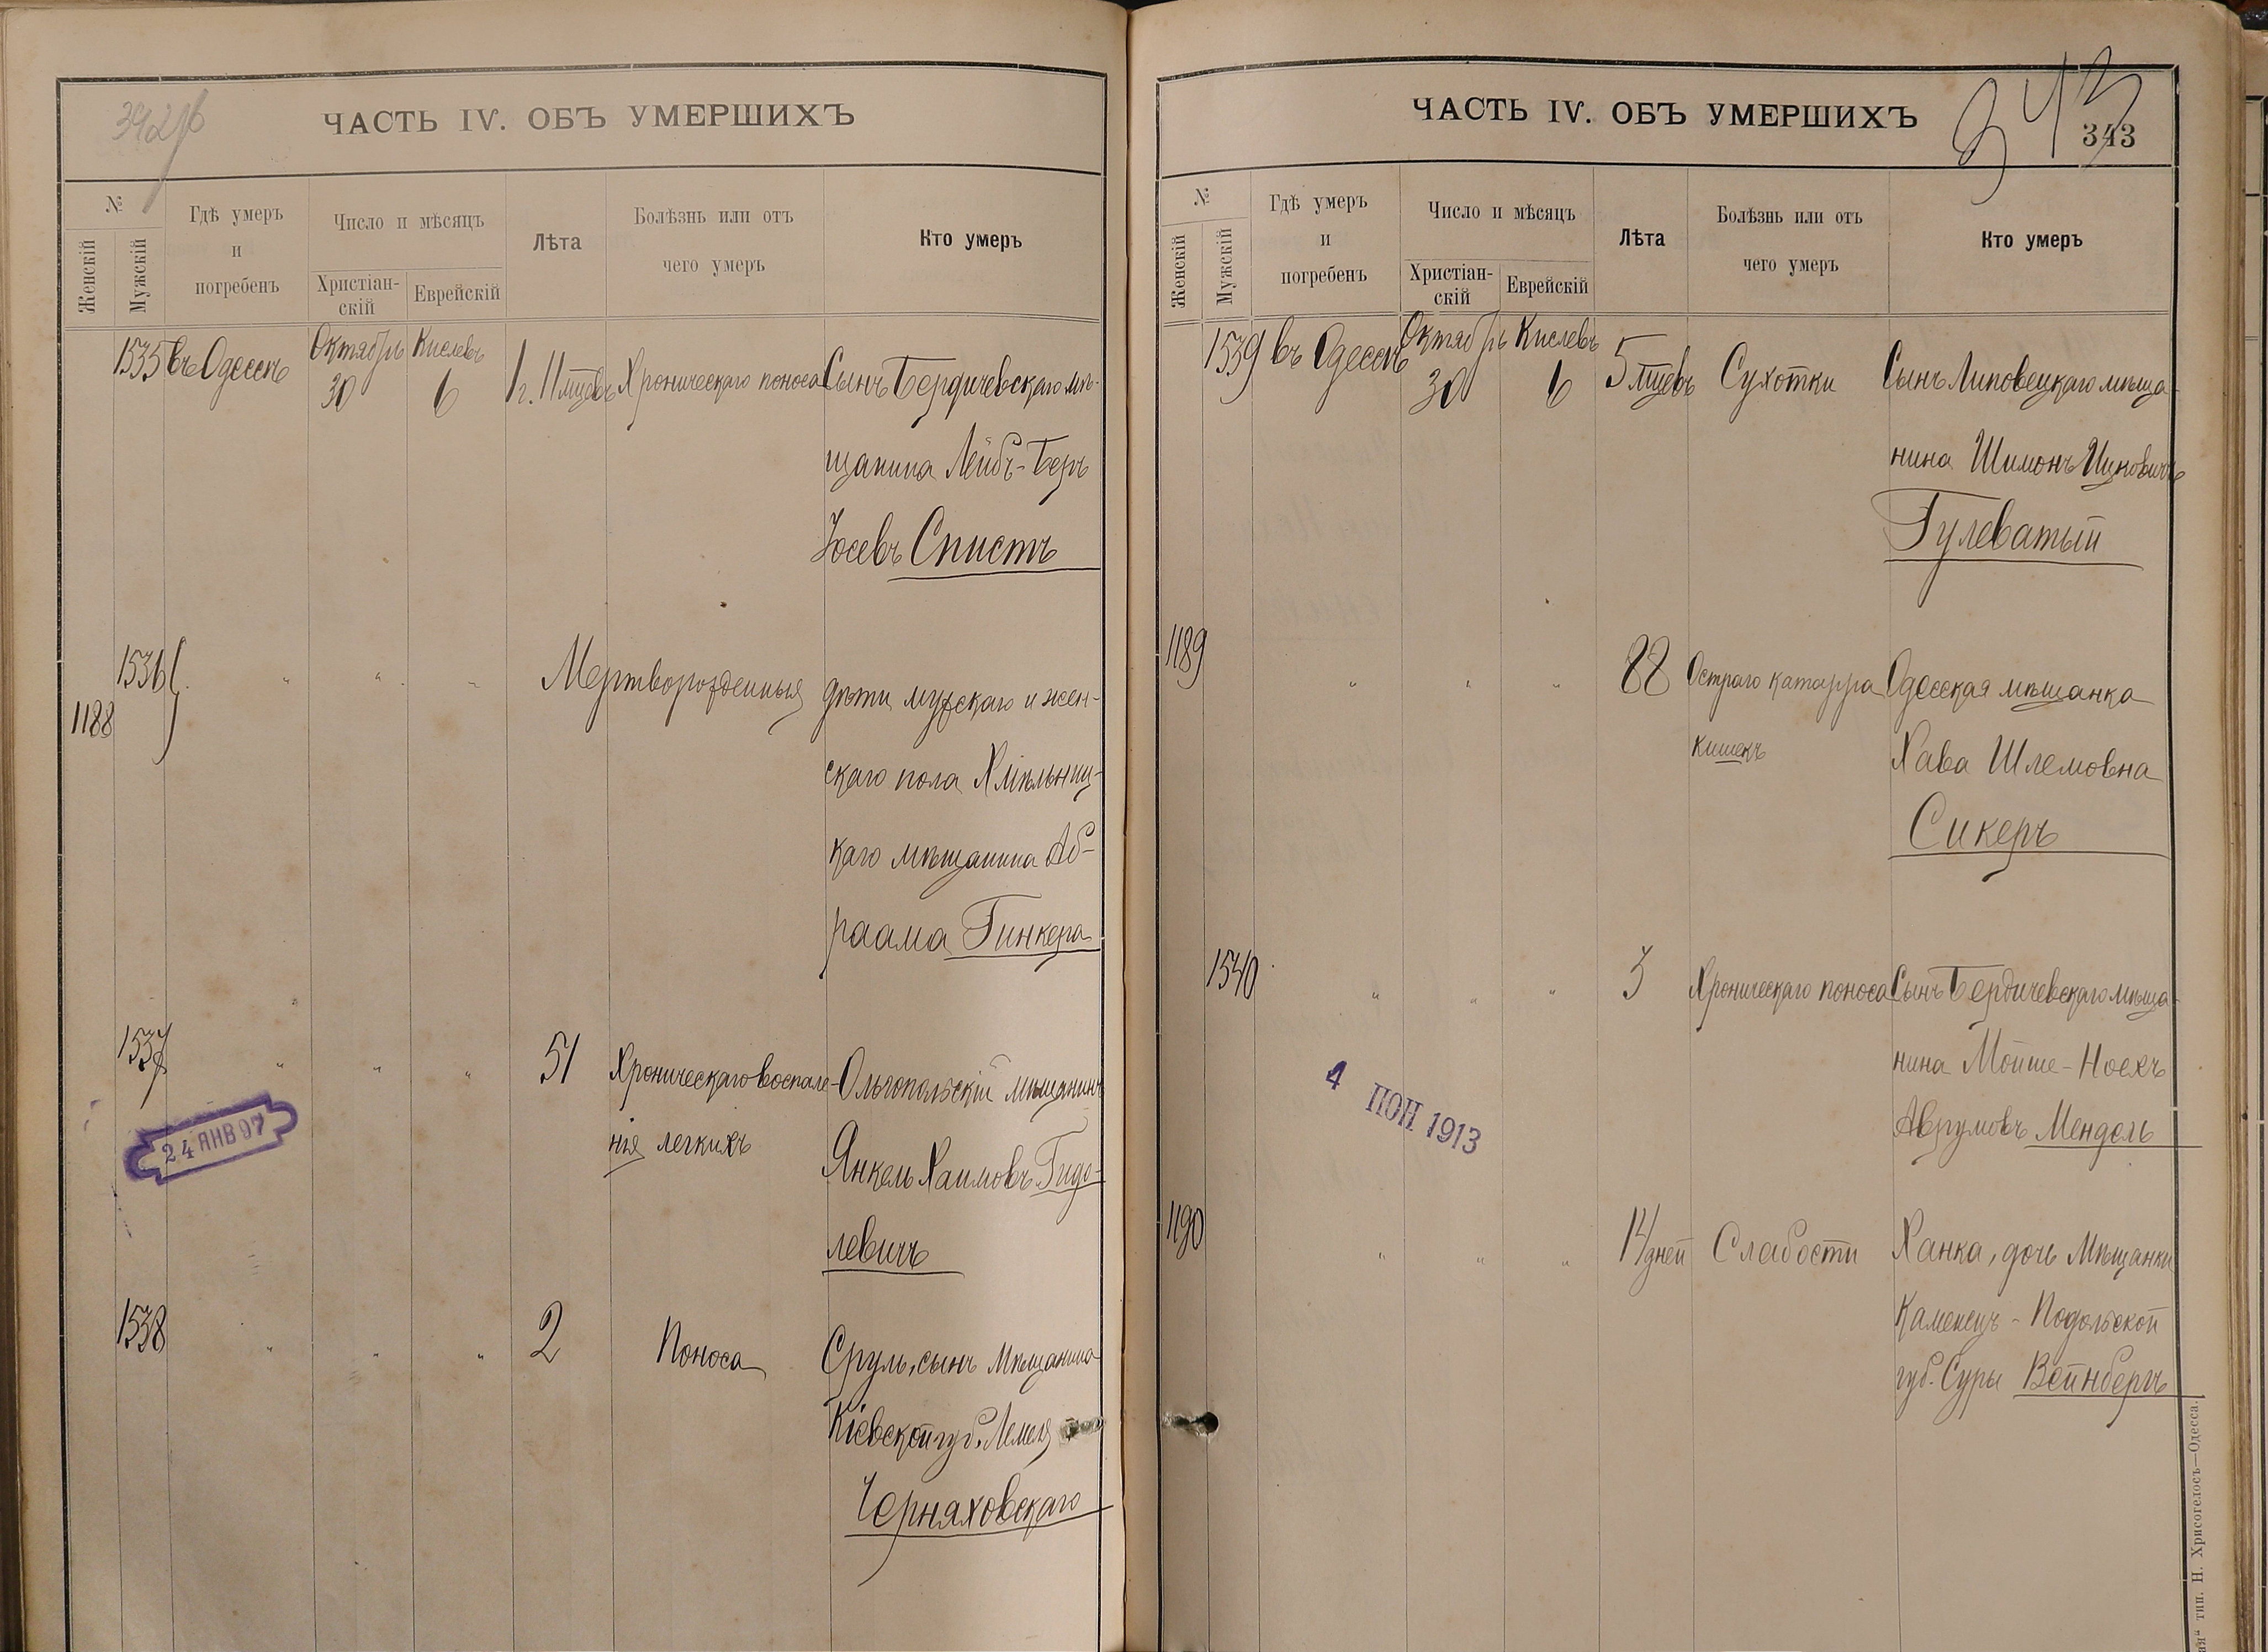 342об
ЧАСТЬ IV. ОБЪ УМЕРШИХЪ
№
Женскій
Мужскій
Гдѣ умеръ
и
погребенъ
Число и мѣсяцъ
Христіан-
скій
Еврейскій
Лѣта
Болѣзнь или отъ
чего умеръ
Кто умеръ
1535 въ Одессѣ Октябрь 30 Кислевъ 6 1 г. 11 мцевъ Хроническаго поноса Сынъ Бердичевскаго мѣ-
щанина Лейбъ-Беръ
Іосевъ Спистъ
1536
1188 " " " Мертворожденныя дѣти мужскаго и жен-
скаго пола Хмѣльниц-
каго мѣщанина Аб-
раама Гинкера
1537 " " " 51 Хроническаго воспале- Ольгопольскій мѣщанинъ
нія легкихъ Янкель Хаимовъ Гидо-
левичъ
24 ЯНВ 97
1538 " " " 2 Поноса Сруль, сынъ мѣщанина
Кіевской губ. Лемеля
Черняховскаго
343
ЧАСТЬ IV. ОБЪ УМЕРШИХЪ
343
№
Женскій
Мужскій
Гдѣ умеръ
и
погребенъ
Число и мѣсяцъ
Христіан-
скій
Еврейскій
Лѣта
Болѣзнь или отъ
чего умеръ
Кто умеръ
1539 въ Одессѣ Октябрь 30 Кислевъ 6 5 мцевъ Сухотки Сынъ Липовецкаго мѣща-
нина Шимонъ Ицковичъ
Гулеватый
1189 " " " 88 Остраго катарра Одесская мѣщанка
кишекъ Хава Шлемовна
Сикеръ
1540 " " " 3 Хроническаго поноса Сынъ Бердичевскаго мѣща-
нина Мойше-Ноехъ
Аврумовъ Мендель
4 ІЮН 1913
1190 " " " 14 дней Слабости Ханка, дочь мѣщанки
Каменецъ-Подольской
губ. Суры Вейнбергъ
тип. Н. Хрисогелосъ—Одесса.